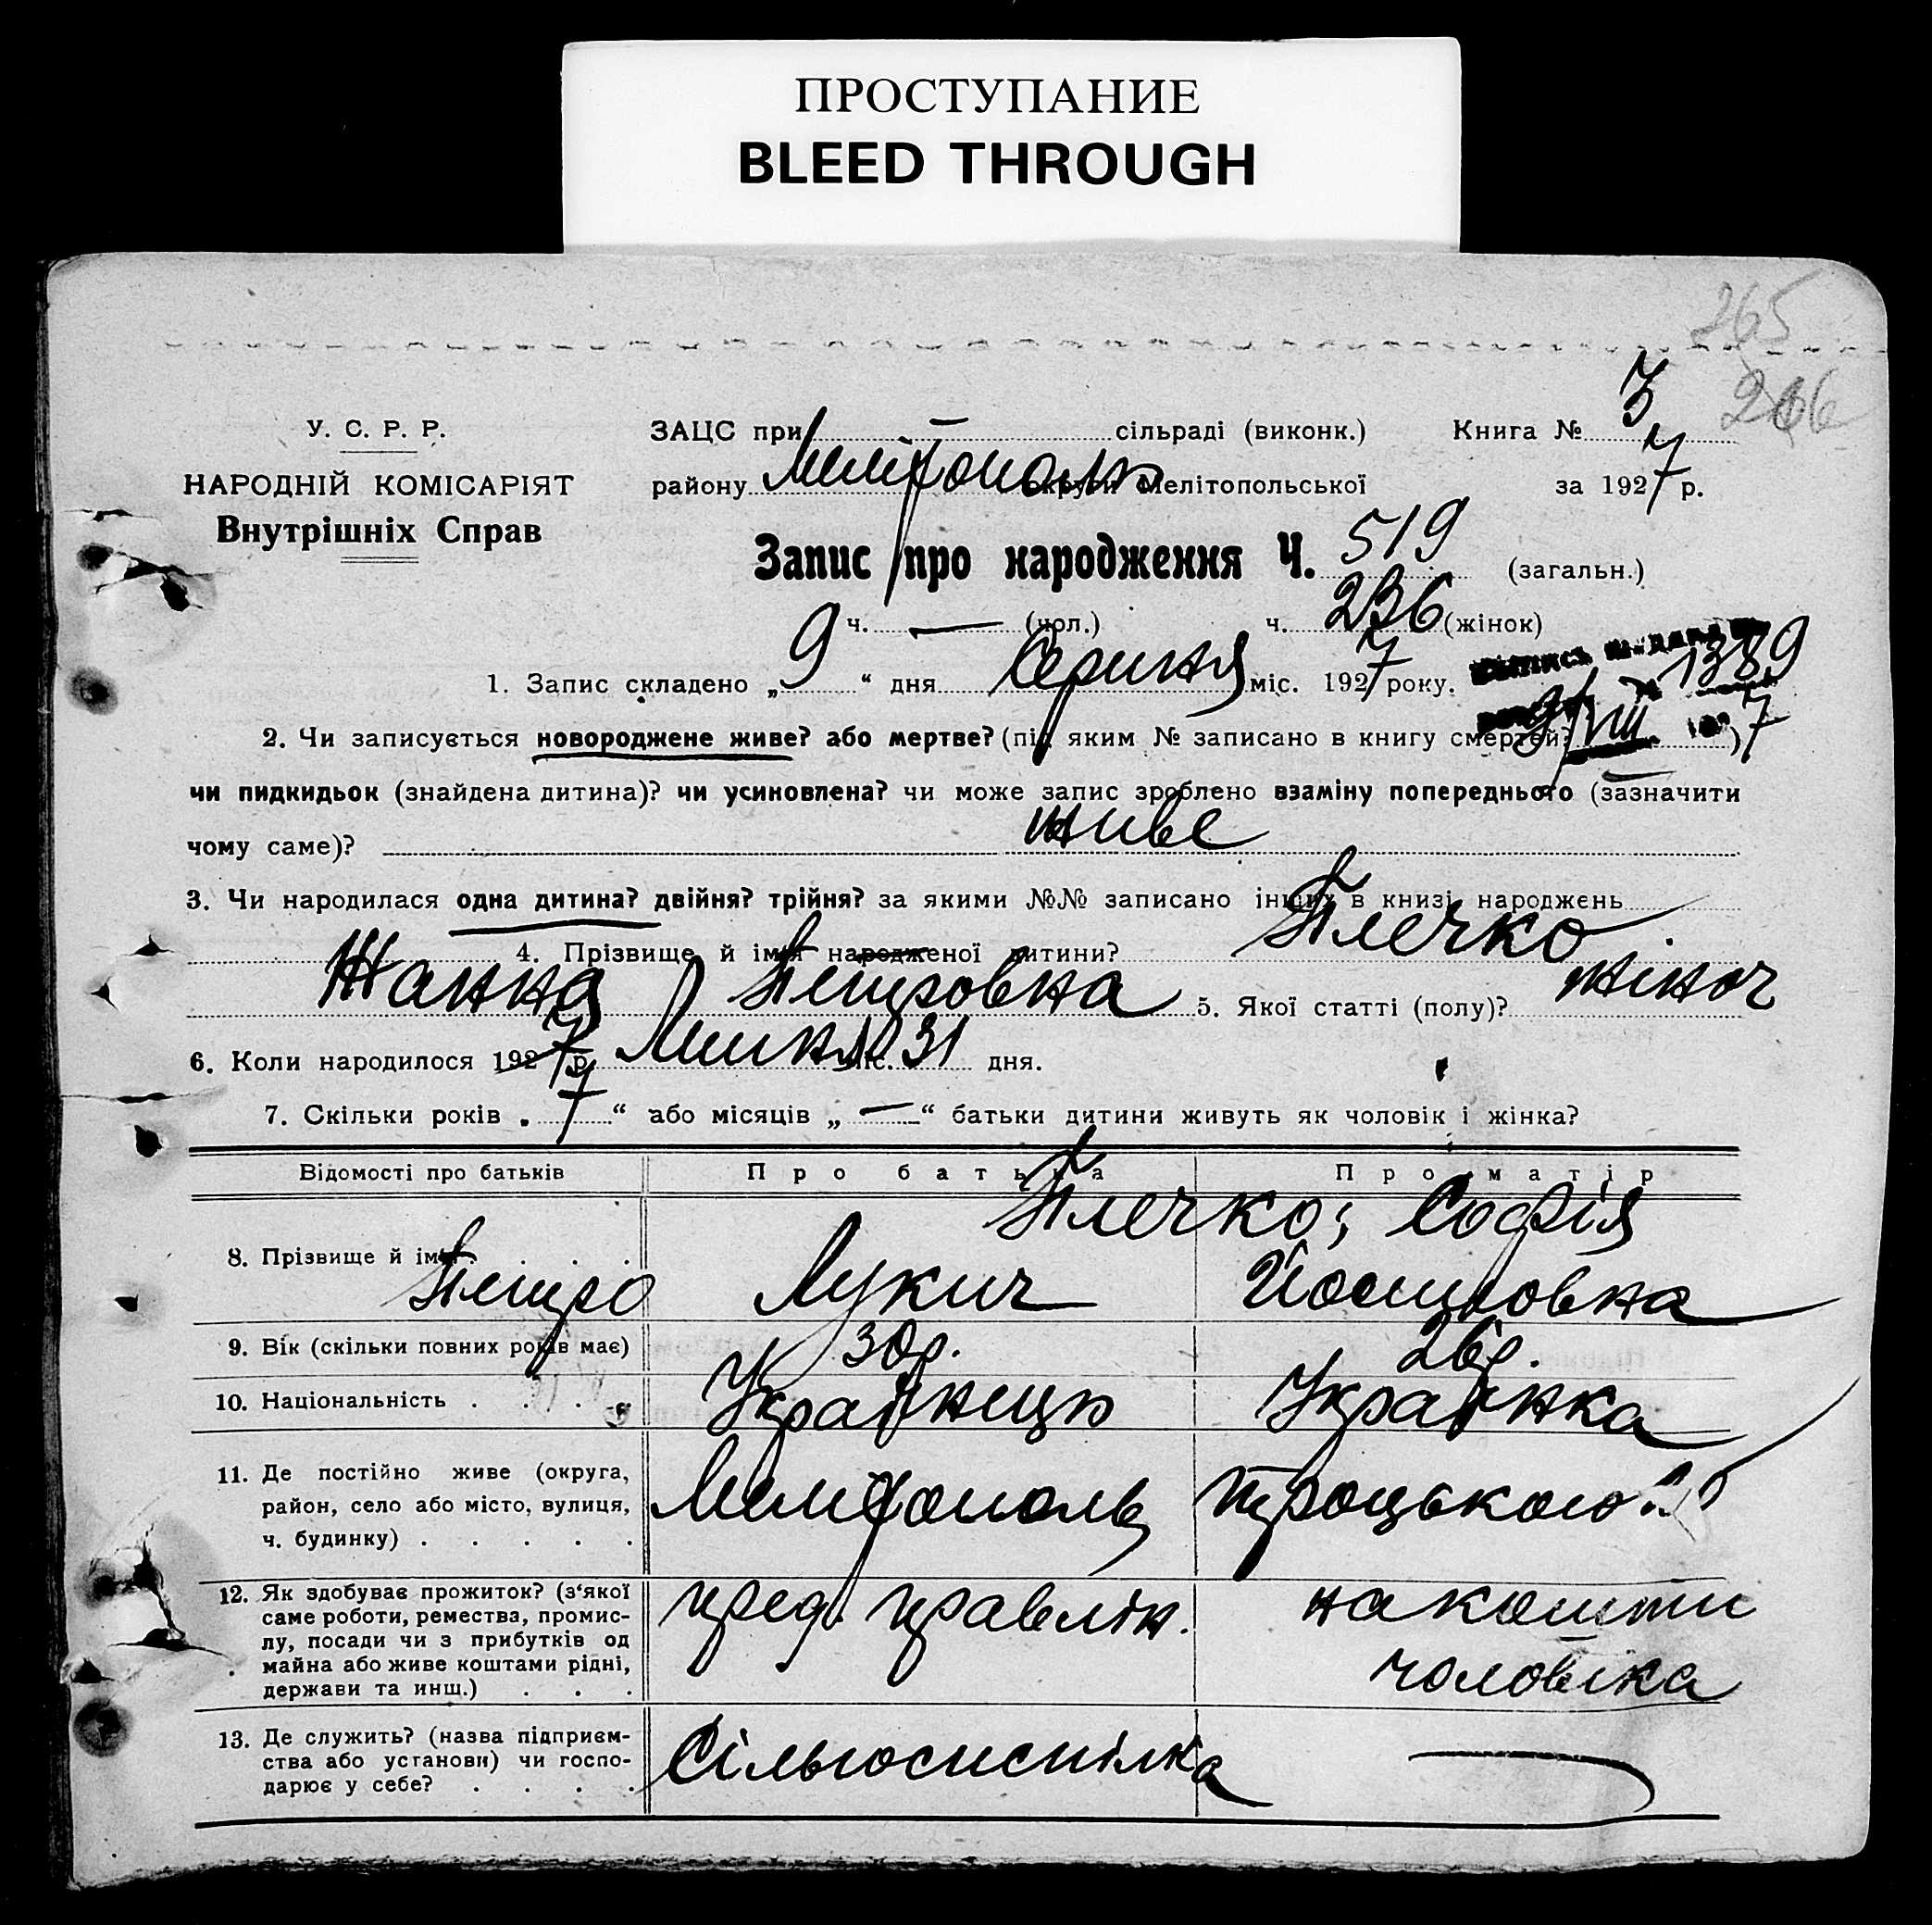 ПРОСТУПАНИЕ
BLEED THROUGH
265
266
У. С. Р. Р.
НАРОДНІЙ КОМІСАРІЯТ
Внутрішніх Справ
ЗАЦС при сільраді (виконк.) Книга № 3
району Мелітополь округи Мелітопольської за 1927 р.
Запис про народження Ч. 519 (загальн.)
ч. — (чол.) ч. 236 (жінок)
1. Запис складено „ 9 “ дня Серпня міс. 1927 року.
№ 1389
9/VIII 1927
2. Чи записується новороджене живе? або мертве? (під яким № записано в книгу смертей? )
чи пидкидьок (знайдена дитина)? чи усиновлена? чи може запис зроблено взаміну попереднього (зазначити
чому саме)? живе
3. Чи народилася одна дитина? двійня? трійня? за якими №№ записано інших в книзі народжень
4. Прізвище й імя народженої дитини? Плечко
Жанна Петровна 5. Якої статті (полу)? жіноч
6. Коли народилося 1927 р. Липня міс. 31 дня.
7. Скільки років „ 7 “ або місяців „ — “ батьки дитини живуть як чоловік і жінка?
Відомості про батьків Про батька Про матір
Плечко, Софія
8. Прізвище й імя . . . . Петро Лукич Йосиповна
9. Вік (скільки повних років має) 30 р. 26 р.
10. Національність . . . . Українець Українка
11. Де постійно живе (округа,
район, село або місто, вулиця,
ч. будинку) . . . . . Мелітополь Троцького
12. Як здобуває прожиток? (з‘якої
саме роботи, ремества, промис-
лу, посади чи з прибутків од
майна або живе коштами рідні,
держави та инш.) . . . пред. правлін. на кошти
чоловіка
13. Де служить? (назва підприєм-
ства або установи) чи госпо-
дарює у себе? . . . . Сільгоспспілка —